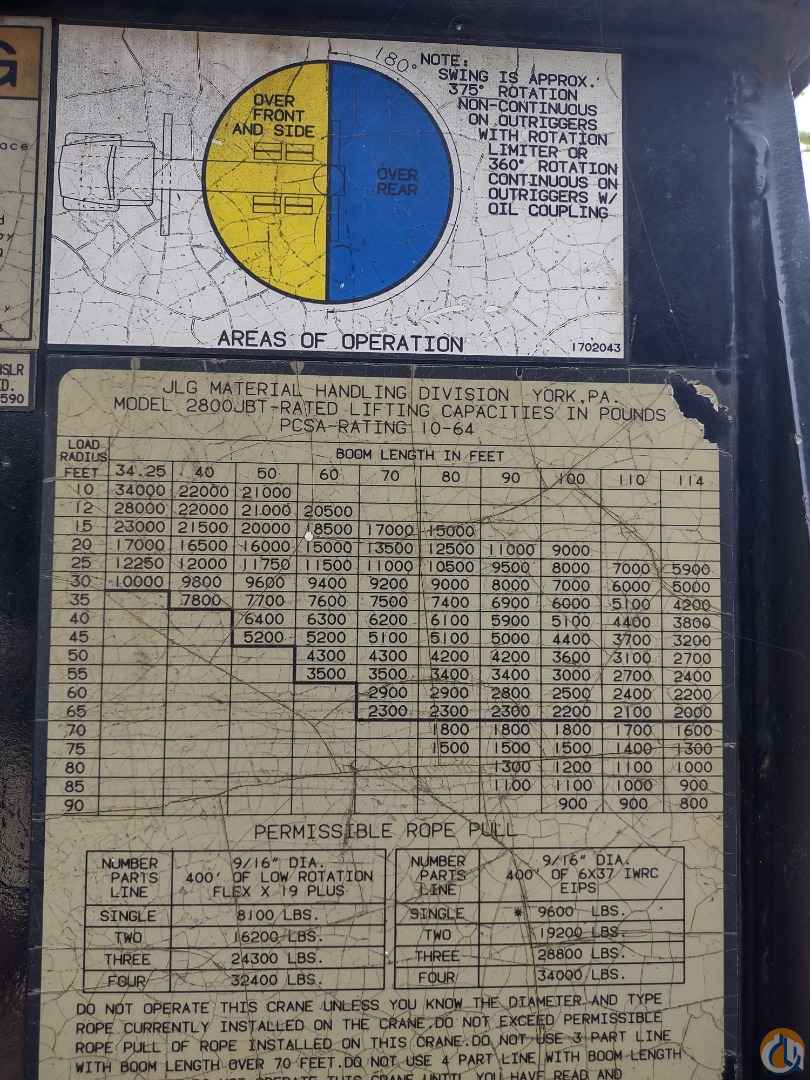 G
ace
d
by
HSLR
D.
590
180°
NOTE:
SWING IS APPROX.
375° ROTATION
NON-CONTINUOUS
ON OUTRIGGERS
WITH ROTATION
LIMITER OR
360° ROTATION
CONTINUOUS ON
OUTRIGGERS W/
OIL COUPLING
OVER
FRONT
AND SIDE
OVER
REAR
AREAS OF OPERATION
1702043
JLG MATERIAL HANDLING DIVISION YORK,PA.
MODEL 2800JBT-RATED LIFTING CAPACITIES IN POUNDS
PCSA-RATING 10-64
LOAD
RADIUS
FEET
BOOM LENGTH IN FEET
34.25 40 50 60 70 80 90 100 110 114
10 34000 22000 21000
12 28000 22000 21000 20500
15 23000 21500 20000 18500 17000 15000
20 17000 16500 16000 15000 13500 12500 11000 9000
25 12250 12000 11750 11500 11000 10500 9500 8000 7000 5900
30 10000 9800 9600 9400 9200 9000 8000 7000 6000 5000
35 7800 7700 7600 7500 7400 6900 6000 5100 4200
40 6400 6300 6200 6100 5900 5100 4400 3800
45 5200 5200 5100 5100 5000 4400 3700 3200
50 4300 4300 4200 4200 3600 3100 2700
55 3500 3500 3400 3400 3000 2700 2400
60 2900 2900 2800 2500 2400 2200
65 2300 2300 2300 2200 2100 2000
70 1800 1800 1800 1700 1600
75 1500 1500 1500 1400 1300
80 1300 1200 1100 1000
85 1100 1100 1000 900
90 900 900 800
PERMISSIBLE ROPE PULL
NUMBER
PARTS
LINE
9/16" DIA.
400' OF LOW ROTATION
FLEX X 19 PLUS
SINGLE 8100 LBS.
TWO 16200 LBS.
THREE 24300 LBS.
FOUR 32400 LBS.
NUMBER
PARTS
LINE
9/16" DIA.
400' OF 6X37 IWRC
EIPS
SINGLE * 9600 LBS.
TWO 19200 LBS.
THREE 28800 LBS.
FOUR 34000 LBS.
DO NOT OPERATE THIS CRANE UNLESS YOU KNOW THE DIAMETER AND TYPE
ROPE CURRENTLY INSTALLED ON THE CRANE.DO NOT EXCEED PERMISSIBLE
ROPE PULL OF ROPE INSTALLED ON THIS CRANE.DO NOT USE 3 PART LINE
WITH BOOM LENGTH OVER 70 FEET.DO NOT USE 4 PART LINE WITH BOOM LENGTH
NOT OPERATE THIS CRANE UNTIL YOU HAVE READ AND